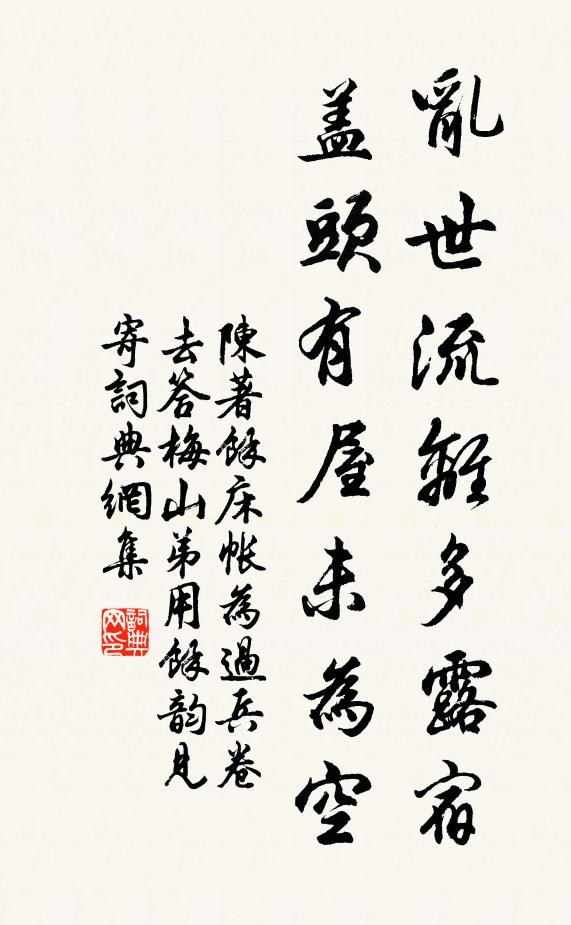 亂世流離多露宿
盖頭有屋未為空
陳著餘床帳為過兵卷
去答梅山弟用餘韵見
寄詞典網集
詞典網印